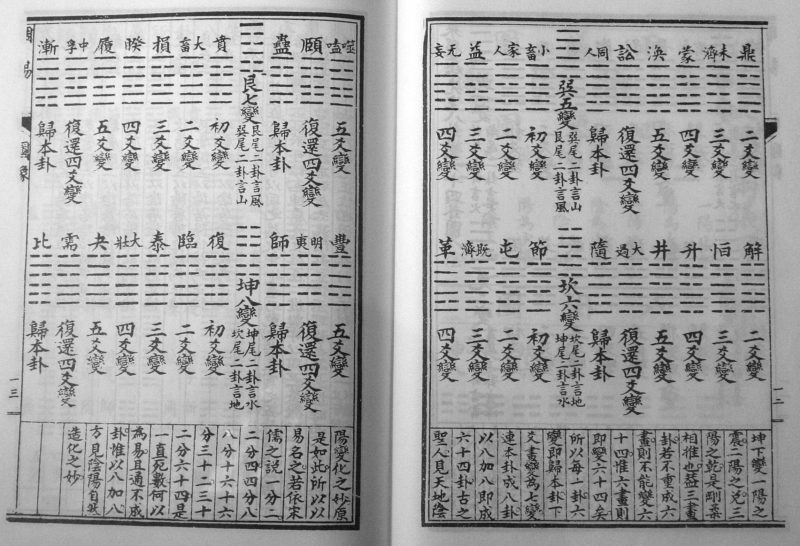 鼎 二爻變
未濟 三爻變
蒙 四爻變
渙 五爻變
訟 復還四爻變
同人 歸本卦
巽五變
巽尾二卦言山
艮尾二卦言風
小畜 初爻變
家人 二爻變
益 三爻變
无妄 四爻變
解 二爻變
恒 三爻變
升 四爻變
井 五爻變
大過 復還四爻變
隨 歸本卦
坎六變
坎尾二卦言地
坤尾二卦言水
節 初爻變
屯 二爻變
既濟 三爻變
革 四爻變
坤下變一陽之
震二陽之兌三
陽之乾是剛柔
相推也蓋三畫
卦若不重成六
畫則不能變六
十四惟六畫則
即變六十四矣
所以每一卦六
變即歸本卦下
爻畫變為七變
連本卦成八卦
以八加八即成
六十四卦古之
聖人見天地陰
一二
噬嗑 五爻變
頤 復還四爻變
蠱 歸本卦
艮七變
艮尾二卦言風
巽尾二卦言山
賁 初爻變
大畜 二爻變
損 三爻變
睽 四爻變
履 五爻變
中孚 復還四爻變
漸 歸本卦
豐 五爻變
明夷 復還四爻變
師 歸本卦
坤八變
坤尾二卦言水
坎尾二卦言地
復 初爻變
臨 二爻變
泰 三爻變
大壯 四爻變
夬 五爻變
需 復還四爻變
比 歸本卦
陽變化之妙原
是如此所以以
易名之若依宋
儒之說一分二
二分四四分八
八分十六十六
分三十二三十
二分六十四是
一直死數何以
為易且通不成
卦惟以八加八
方見陰陽自然
造化之妙
周易
一三